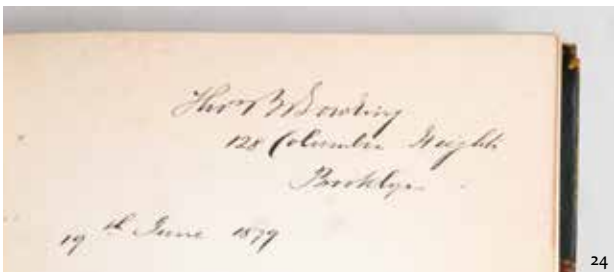 Thos B Bowring
128 Columbia Heights
Brooklyn
19th June 1879
24